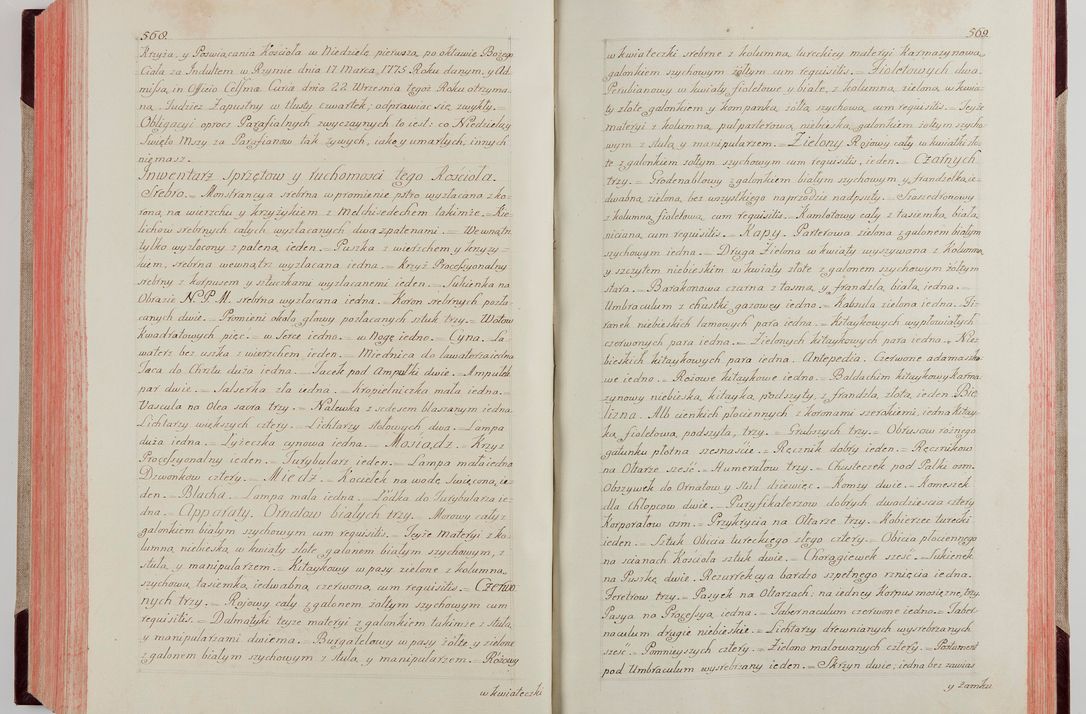 568.
Krzyża, y Poswiącania Kościoła w Niedzielę pierwszą po oktawie Bożego
Ciała za Indultem w Rzymie dnia 17 Marca, 1775 Roku danym, y Ad-
misją in Officio Celsmæ Curiæ dnia 22 Września tegoż Roku otrzyma-
na. Tudzież Zapustny w tłusty czwartek, odprawiac się zwykły. =
Obligacyi oprocz Parafialnych zwyczaynych to iest: co Niedziela y
Święto Mszy za Parafianow tak żywych, iako y umarłych, innych
niemasz.
Inwentarz Sprzętow y ruchomosci tego Kościoła.
Srebro. = Monstrancya srebrna w promienie pstro wyzłacana z ko-
roną na wierzchu y krzyżykiem z Melchisedechem takimże. = Kie-
lichow srebrnych całych wyzłacanych dwa z patenami. = We wnątrz
tylko wyzłocony z pateną ieden. = Puszka z wierzchem y krzyży =
kiem, srebrna wewnątrz wyzłacana iedna. = Krzyż Processyonalny
srebrny z korpusem y sztuczkami wyzłacanemi ieden. = Sukienka na
Obrazie N. P. M. srebrna wyzłacana iedna. = Koron srebrnych pozła-
canych dwie. = Promieni około głowy pozłacanych sztuk trzy. = Wotow
kwadratowych pięc. = w Serce iedno. = w Nogę iedno. = Cyna. La-
waterz bez uszka z wierzchem ieden. = Miednica do lawaterza iedna
Taca do Chrztu duża iedna. = Tacek pod Ampułki dwie. = Ampułek
par dwie. = Salserka zła iedna. = Kropielniczka mała iedna. =
Vascula na Olea sacra trzy. = Nalewka z sedesem blaszanym iedna
Lichtarzy większych cztery. = Lichtarzy stołowych dwa. = Lampa
duża iedna. = Łyżeczka cynowa iedna. = Mosiądz. = Krzyż
Processyonalny ieden. = Turybularz ieden. = Lampa mała iedna
Dzwonkow cztery. = Miedź. = Kociełek na wodę Święconą ie-
den. = Blacha. Lampa mała iedna. = Łódka do Turybularza ie-
dna. = Apparaty. Ornatow białych trzy. = Morowy cały z
galonkiem białym szychowym cum requisitis. = Teyże Materyi z ko-
lumną niebieską w kwiaty złote galonem białym szychowym, z
stułą y manipularzem. = Kitaykowy w pasy zielone z kolumną
szychową tasiemką iedwabną czerwoną cum requisitis. = Czerwo
nych trzy. = Rojowy cały z galonem żołtym szychowym cum
requisitis. = Dalmatyki teyże materyi z galonkiem takimże z stułą
y manipularzami dwiema. = Burgatelowy w pasy żołte y zielone
z galonem białym szychowym z stułą y manipularzem. = Różowy
w kwiateczki
569
w kwiateczki srebrne z kolumną tureckiey materyi karmazynową
galonkiem szychowym żołtym cum requisitis. = Fioletowych dwa
Perubianowy w kwiaty fioletowe y białe, z kolumną zieloną w kwia-
ty złote galonkiem y kompanką żołtą szychową cum requisitis. = Teyże
materyi z kolumną pułparterową niebieską galonkiem żołtym szycho
wym z stułą y manipularzem. = Zielony Rojowy cały w kwiatki zło-
te z galonkiem żołtym szychowym cum requisitis, ieden. = Czarnych
trzy. = Grodenablowy z galonkiem białym szychowym y frandzelką ie-
dwabną zieloną bez wszystkiego naprzodzie nadpsuty. = Traszedronowy
z kolumną fioletową cum requisitis. = Kamlotowy cały z tasiemką białą
niciana cum requisitis. = Kapy. Parterowa zielona z galonem białym
szychowym iedna. = Druga Zielona w kwiaty wyszywana z kolumną
y szczytem niebieskim w kwiaty złote z galonem szychowym żołtym
stara. = Barakonowa czarna z tasmą y frandzlą białą iedna. =
Umbraculum z chustki gazowey iedno. = Kabzula zielona iedna. Fi-
ranek niebieskich lamowych para iedna. = Kitaykowych wypłowiałych
czerwonych para iedna. = Zielonych kitaykowych para iedna. Nie-
bieskich kitaykowych para iedna. Antepedia. Czerwone adamaszko
we iedno. = Różowe kitaykowe iedno. = Baldachim kitaykowy karma
zynowy niebieską kitayką podszyty, z frandzlą złotą ieden. Bie
lizna. Alb cienkich płociennych z koronami szerokiemi, iedna kitay-
ką fioletową podszyta, trzy. = Grubszych trzy. = Obrusow rożnego
gatunku płotna szesnaście. = Ręcznik dobry ieden. = Ręcznikow
na Ołtarze sześć. = Humerałow trzy. = Chusteczek pod Palki osm.
Obszywek do Ornatow y Stuł dziewięc. = Komzy dwie. = Komeszek
dla Chłopcow dwie. = Puryfikaterzow dobrych dwadzieścia cztery
Korporałow osm. = Przykrycia na Ołtarze trzy. = Kobierzec turecki
ieden. = Sztuk Obicia tureckiego złego cztery. = Obicia płociennego
na ścianach Kościoła sztuk dwie. = Chorągiewek sześć. = Sukienek
na Puszkę dwie. Rezurrekcya bardzo szpetnego rznięcia iedna.
Feretrow trzy. = Pasyek na Ołtarzach, na iedney Korpus mosiężne, trzy.
Pasya na Processyą iedna. = Tabernaculum czerwone iedno. = Taber
naculum drugie niebieskie. = Lichtarzy drewnianych wysrebrzanych
sześć. = Pomnieyszych cztery. = Zielono malowanych cztery. = Postument
pod Umbraculum wysrebrzany ieden. = Skrzyn dwie, iedna bez zawias
y zamku